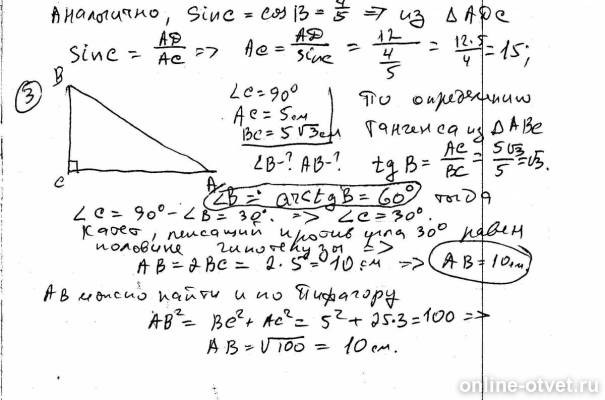 Аналогично, Sinc = cosB = 4/5 => из △ADC
Sinc = AD/AC => AC = AD/sinc = 12/(4/5) = 12·5/4 = 15;
③
B
C
A
∠C = 90°
AC = 5см
BC = 5√3см
∠B-? AB-?
По определению
тангенса из △ABC
tgB = AC/BC = 5√3/5 = √3.
∠B = arctgB = 60° тогда
∠C = 90° - ∠B = 30°. => ∠C = 30°.
Катет, лежащий против угла 30° равен
половине гипотенузы =>
AB = 2BC = 2·5 = 10 см => AB = 10см.
AB можно найти и по Пифагору
AB² = BC² + AC² = 5² + 25·3 = 100 =>
AB = √100 = 10 см.
online-otvet.ru